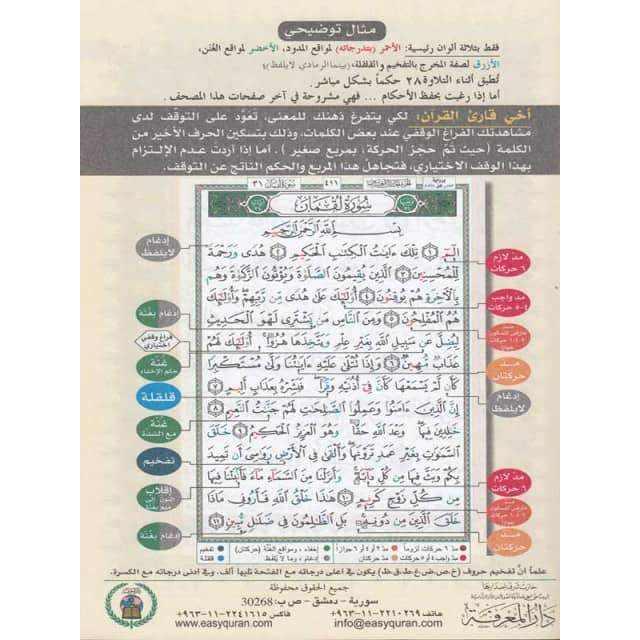 مثال توضيحي
فقط بثلاثة ألوان رئيسية: الأحمر (بتدرجاته) لمواقع المدود، الأخضر لمواقع الغنن،
الأزرق لصفة المخرج بالتفخيم والقلقلة، (بينما الرمادي لا يلفظ)؛
تُطبق أثناء التلاوة ٢٨ حكماً بشكل مباشر.
أما إذا رغبت بحفظ الأحكام ... فهي مشروحة في آخر صفحات هذا المصحف.
أخي قارئ القرآن: لكي يتفرغ ذهنك للمعنى، تعوّد على التوقف لدى
مشاهدتك الفراغ الوقفي عند بعض الكلمات، وذلك بتسكين الحرف الأخير من
الكلمة (حيث تمّ حجز الحركة، بمربع صغير). أما إذا أردت عدم الإلتزام
بهذا الوقف الاختياري، فتجاهل هذا المربع والحكم الناتج عن التوقف.
سورة لقمان ٣١
٤١١
سُورَةُ لُقْمَانَ
بِسْمِ اللَّهِ الرَّحْمَٰنِ الرَّحِيمِ
الٓمٓ ۝١ تِلْكَ ءَايَٰتُ الْكِتَٰبِ الْحَكِيمِ ۝٢ هُدًى وَرَحْمَةً
لِّلْمُحْسِنِينَ ۝٣ الَّذِينَ يُقِيمُونَ الصَّلَوٰةَ وَيُؤْتُونَ الزَّكَوٰةَ وَهُم
بِالْءَاخِرَةِ هُمْ يُوقِنُونَ ۝٤ أُوْلَٰٓئِكَ عَلَىٰ هُدًى مِّن رَّبِّهِمْ وَأُوْلَٰٓئِكَ
هُمُ الْمُفْلِحُونَ ۝٥ وَمِنَ النَّاسِ مَن يَشْتَرِى لَهْوَ الْحَدِيثِ
لِيُضِلَّ عَن سَبِيلِ اللَّهِ بِغَيْرِ عِلْمٍ وَيَتَّخِذَهَا هُزُوًا أُوْلَٰٓئِكَ لَهُمْ
عَذَابٌ مُّهِينٌ ۝٦ وَإِذَا تُتْلَىٰ عَلَيْهِ ءَايَٰتُنَا وَلَّىٰ مُسْتَكْبِرًا
كَأَن لَّمْ يَسْمَعْهَا كَأَنَّ فِىٓ أُذُنَيْهِ وَقْرًا فَبَشِّرْهُ بِعَذَابٍ أَلِيمٍ ۝٧
إِنَّ الَّذِينَ ءَامَنُوا وَعَمِلُوا الصَّٰلِحَٰتِ لَهُمْ جَنَّٰتُ النَّعِيمِ ۝٨
خَٰلِدِينَ فِيهَا وَعْدَ اللَّهِ حَقًّا وَهُوَ الْعَزِيزُ الْحَكِيمُ ۝٩ خَلَقَ
السَّمَٰوَٰتِ بِغَيْرِ عَمَدٍ تَرَوْنَهَا وَأَلْقَىٰ فِى الْأَرْضِ رَوَٰسِىَ أَن تَمِيدَ
بِكُمْ وَبَثَّ فِيهَا مِن كُلِّ دَآبَّةٍ وَأَنزَلْنَا مِنَ السَّمَآءِ مَآءً فَأَنۢبَتْنَا فِيهَا
مِن كُلِّ زَوْجٍ كَرِيمٍ ۝١٠ هَٰذَا خَلْقُ اللَّهِ فَأَرُونِى مَاذَا
خَلَقَ الَّذِينَ مِن دُونِهِ بَلِ الظَّٰلِمُونَ فِى ضَلَٰلٍ مُّبِينٍ ۝١١
مدّ لازم
٦ حركات
مد واجب
٤-٥ حركات
مـد
حركتان
إدغام
لا يلفظ
مدّ لازم
٦ حركات
مـد
حركتان
إدغام
لا يلفظ
إدغام بغنة
فراغ وقفي
اختياري
غنّة
حكم الإخفاء
قلقلة
غنّة
مع الشدة
تفخيم
إقلاب
إدغام بغنة
مدّ ٦ حركات لزوماً مدّ ٢ أو ٤ أو ٦ جوازاً إخفاء، ومواقع الغنّة (حركتان) تفخيم
مدّ واجب ٤ أو ٥ حركات مدّ حركتان إدغام، وما لا يُلفظ قلقلة
علماً أنّ تفخيم حروف (خ.ص.ض.غ.ط.ق.ظ) يكون في أعلى درجاته مع الفتحة تليها ألف. وفي أدنى درجاته مع الكسرة.
جميع الحقوق محفوظة
سورية - دمشق - ص.ب: 30268
هاتف ٢٢١٠٢٦٩-١١-٩٦٣+ فاكس ٢٢٤١٦١٥-١١-٩٦٣+
info@easyquran.com www.easyquran.com
دار المعرفة